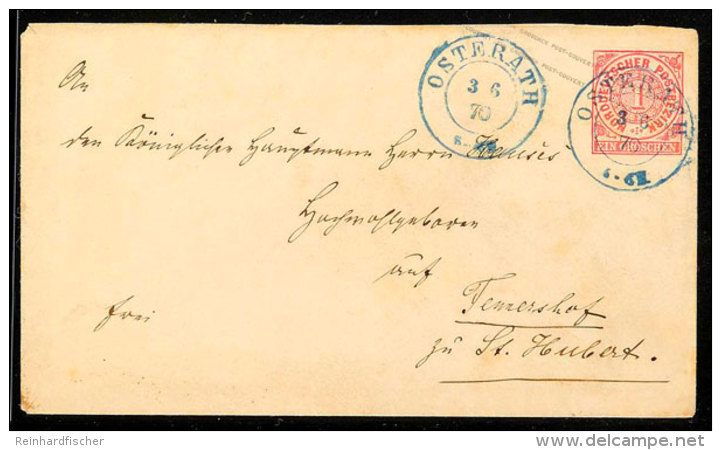 OSTERATH
3 6
70
NORDDEUTSCHER POSTBEZIRK
1
EIN GROSCHEN
OSTERATH
3 6
70
An
den Königlichen Hauptmann Herrn
Hochwohlgeboren
auf
frei
Tennershof
zu St. Hubert.
Reinhardfischer
delcampe.net